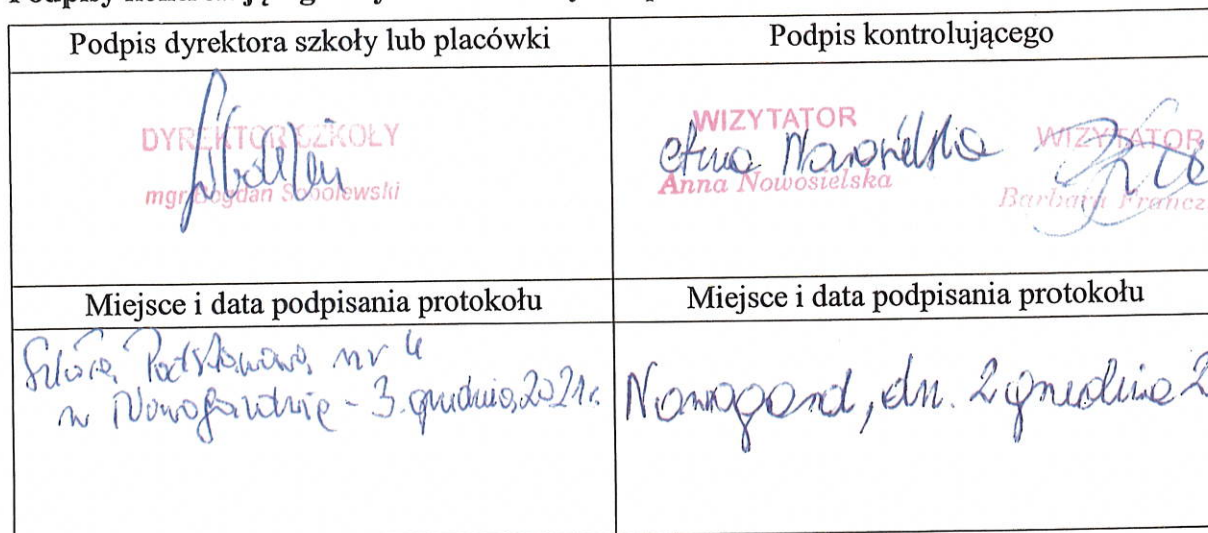 Podpis dyrektora szkoły lub placówki
Podpis kontrolującego
DYREKTOR SZKOŁY
mgr Bogdan Sobolewski
WIZYTATOR
Anna Nowosielska
Anna Nowosielska
WIZYTATOR
Barbara Francz
Miejsce i data podpisania protokołu
Miejsce i data podpisania protokołu
Szkoła Podstawowa nr 4
w Nowogardzie - 3. grudnia, 2021r.
Nowogard, dn. 2 grudnia 2